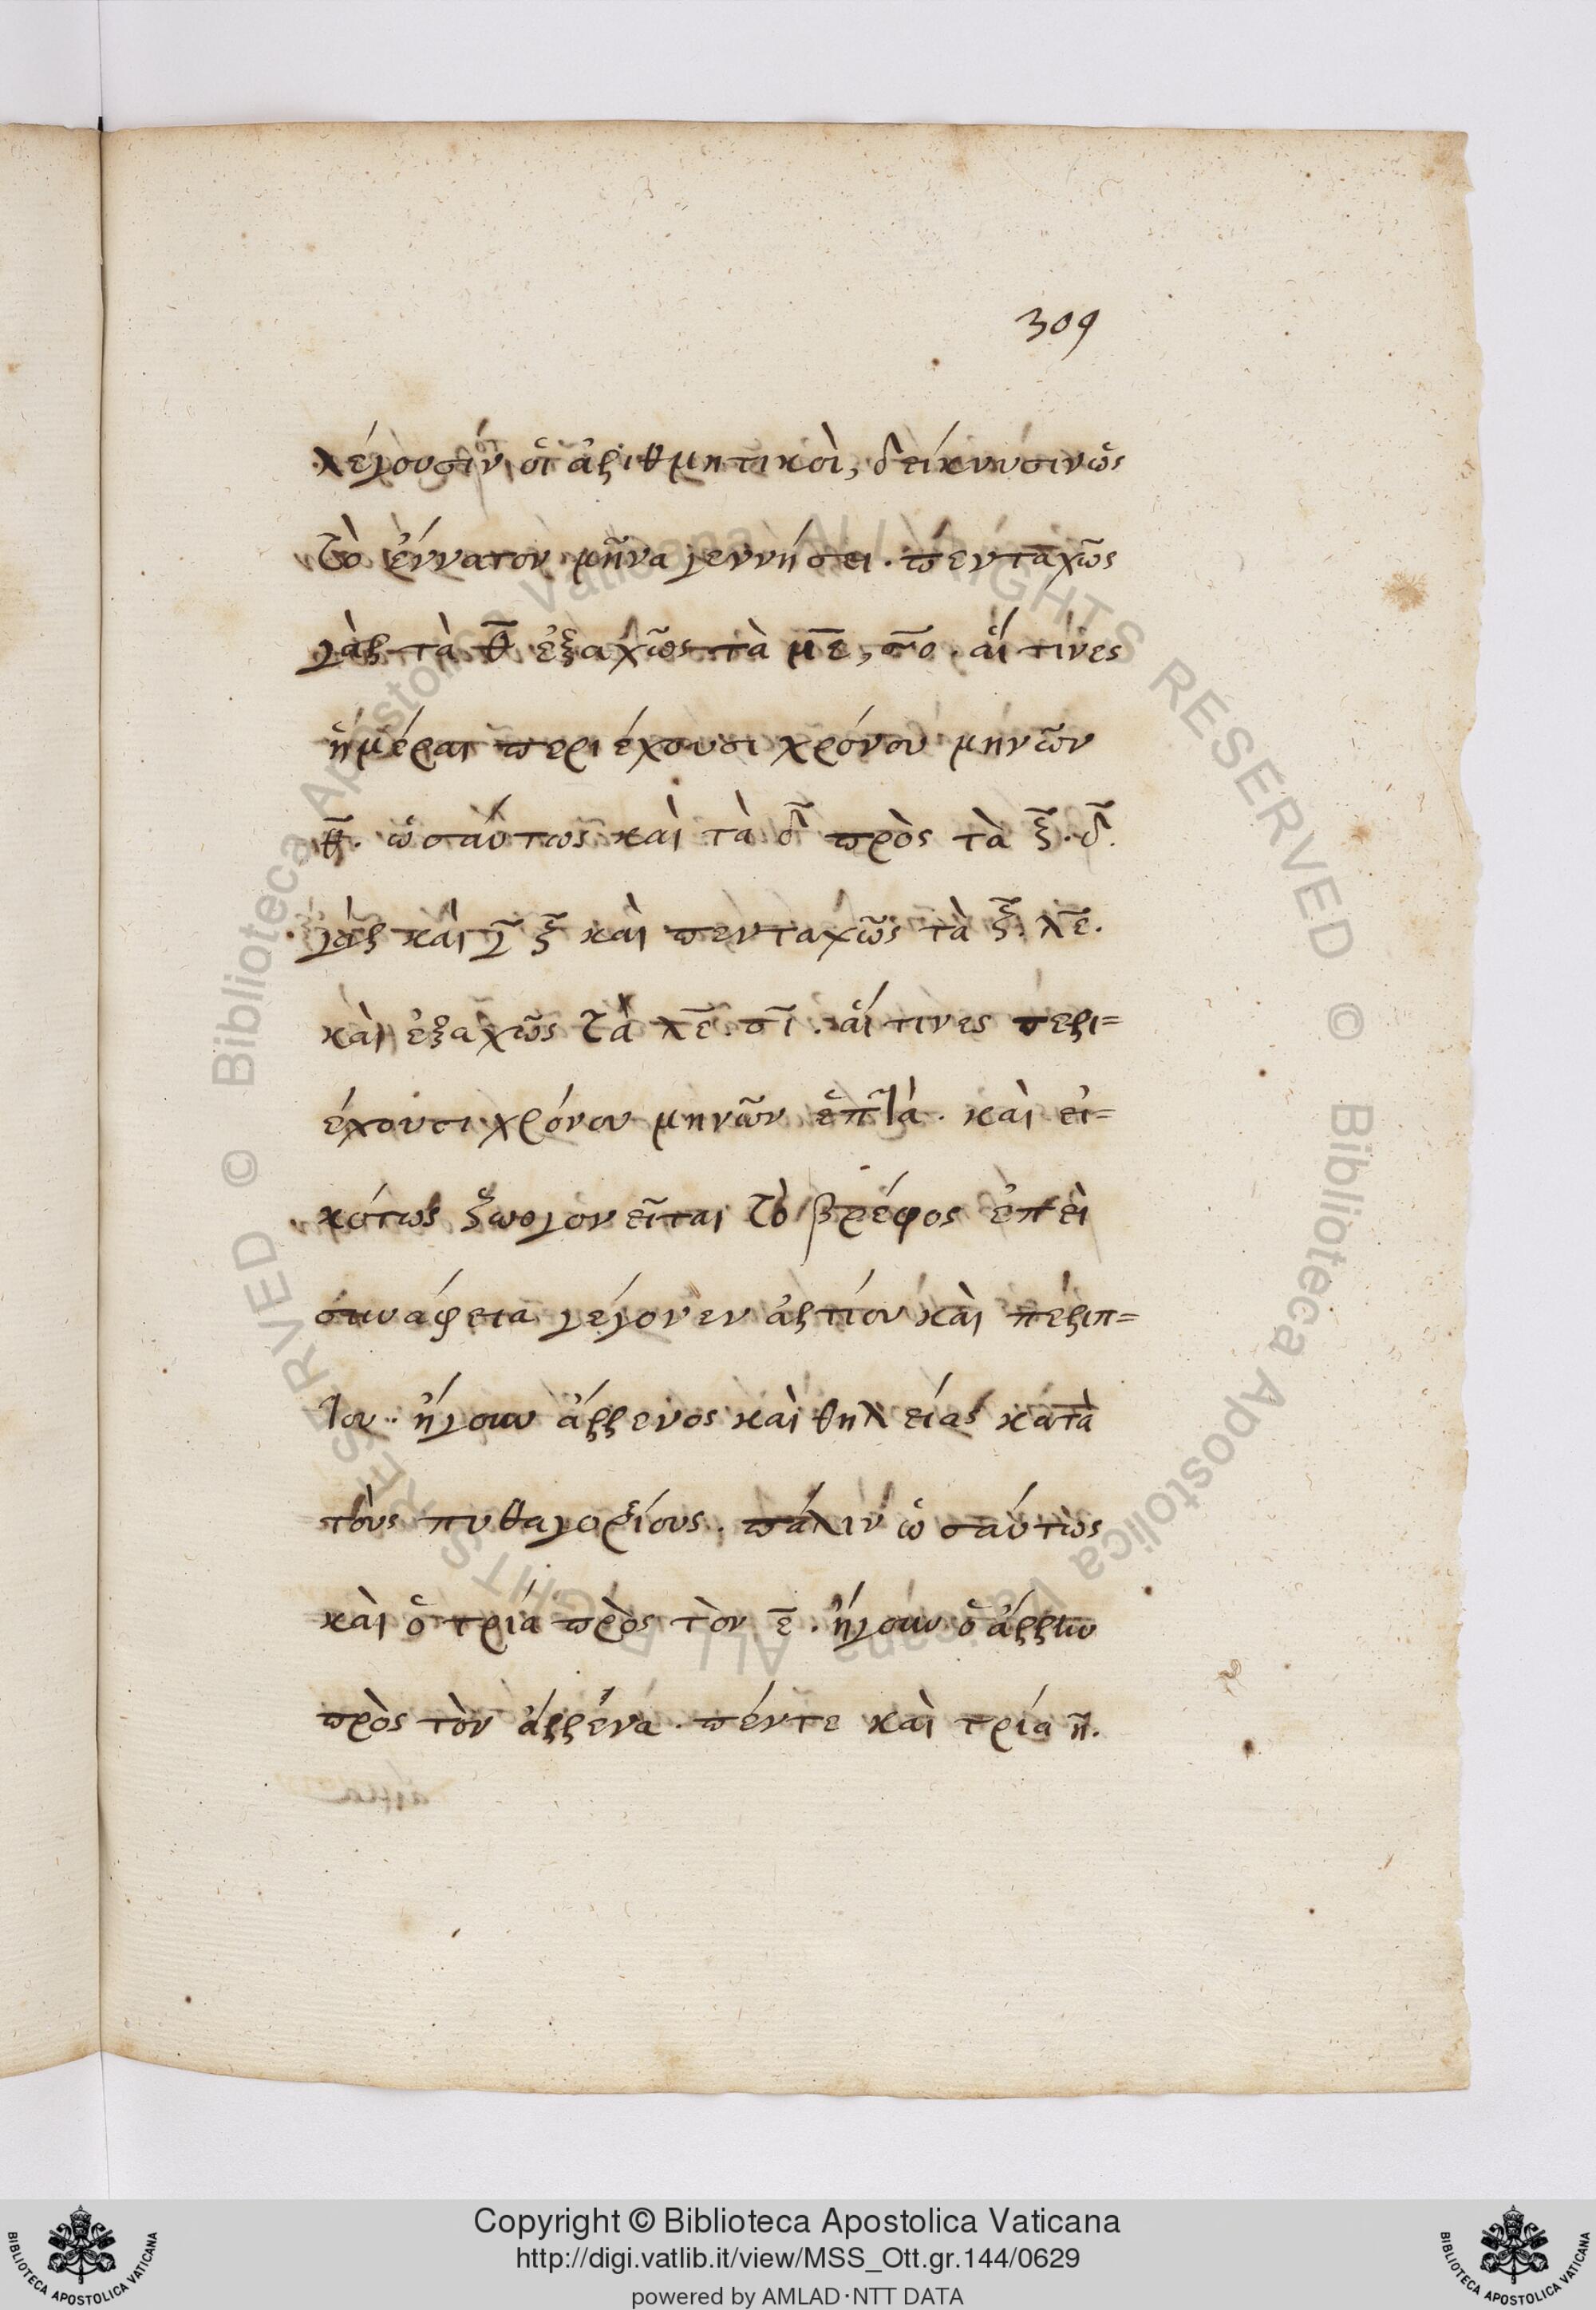 309
λέγουσιν οἱ ἀριθμητικοὶ, δείκνυσιν ὡς
τὸ ἔννατον μῆνα γεννήσει. πενταχῶς
γὰρ τὰ θ̅ ἑξαχῶς τὰ μ̅ε̅, σ̅ο. αἵ τινες
ἡμέραι περιέχουσι χρόνου μηνῶν
θ̅. ὡσαύτως καὶ τὰ δ̅ πρὸς τὰ ξ̅. δ̅.
γὰρ καὶ γ̅ ξ̅ καὶ πενταχῶς τὰ ξ̅. λ̅ε̅.
καὶ ἑξαχῶς τὰ λ̅ε̅. σ̅ι̅. αἵ τινες περι=
έχουσι χρόνου μηνῶν ἑπτά. καὶ εἰ=
κότως ζωογονεῖται τὸ βρέφος ἐπεὶ
συνάφεια γέγονεν ἀρτίου καὶ περιπ=
του. ἤγουν ἄρρενος καὶ θηλείας κατὰ
τοὺς πυθαγορίους. πάλιν ὡσαύτως
καὶ ὁ τρία πρὸς τὸν ε̅. ἤγουν ὁ ἄρρην
πρὸς τὸν ἄρρένα. πέντε καὶ τρία η̅.
Copyright © Biblioteca Apostolica Vaticana
http://digi.vatlib.it/view/MSS_Ott.gr.144/0629
powered by AMLAD·NTT DATA
BIBLIOTECA APOSTOLICA VATICANA
BIBLIOTECA APOSTOLICA VATICANA
© Biblioteca Apostolica Vaticana ALL RIGHTS RESERVED
© Biblioteca Apostolica Vaticana ALL RIGHTS RESERVED